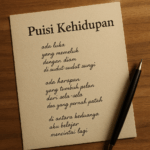 Puisi Kehidupan
ada luka
yang memeluk
dengan diam
di sudut-sudut sunyi
ada harapan
yang tumbuh pelan
dari sela-sela
doa yang pernah patah
di antara keduanya
aku belajar
mencintai lagi